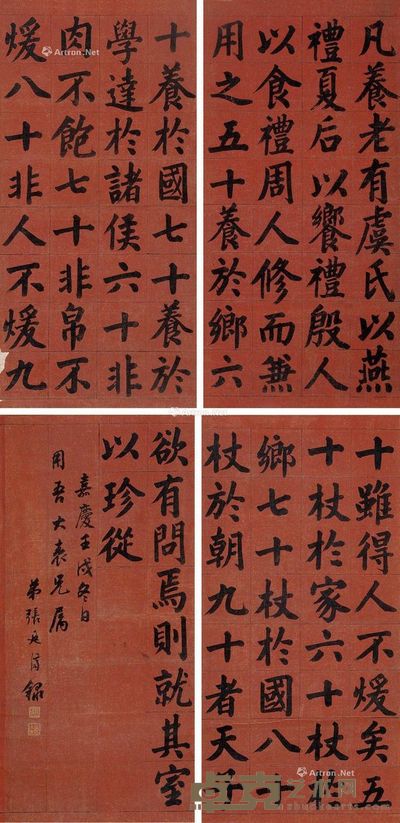 凡養老有虞氏以燕
禮夏后以饗禮殷人
以食禮周人修而兼
用之五十養於鄉六
十養於國七十養於
學達於諸侯六十非
肉不飽七十非帛不
煖八十非人不煖九
十雖得人不煖矣五
十杖於家六十杖於
鄉七十杖於國八十
杖於朝九十者天子
欲有問焉則就其室
以珍從
嘉慶壬戌冬日
用吾大表兄屬
弟張廷濟錄
Artron.Net
Artron.Net
Artron.Net
Artron.Net